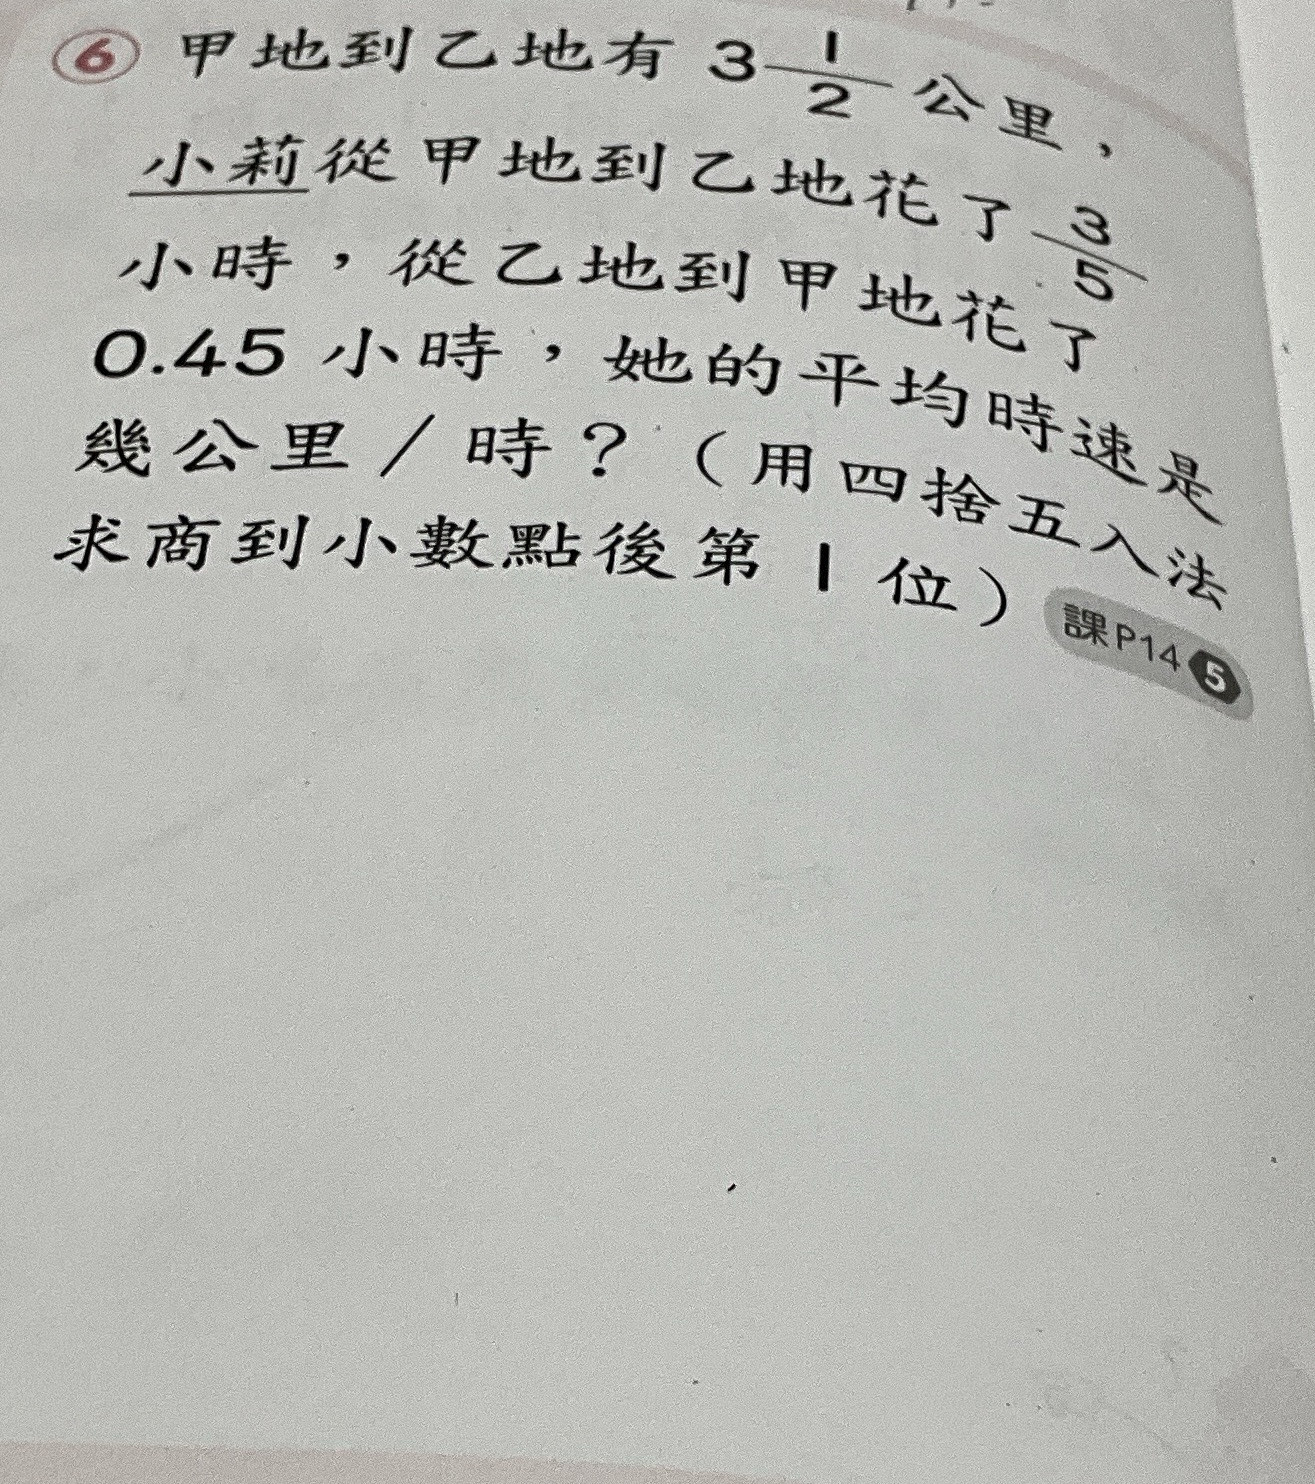 ⑥ 甲地到乙地有 3 1/2 公里，
小莉從甲地到乙地花了 3/5
小時，從乙地到甲地花了
0.45 小時，她的平均時速是
幾公里／時？（用四捨五入法
求商到小數點後第 1 位）
課P14 ❺